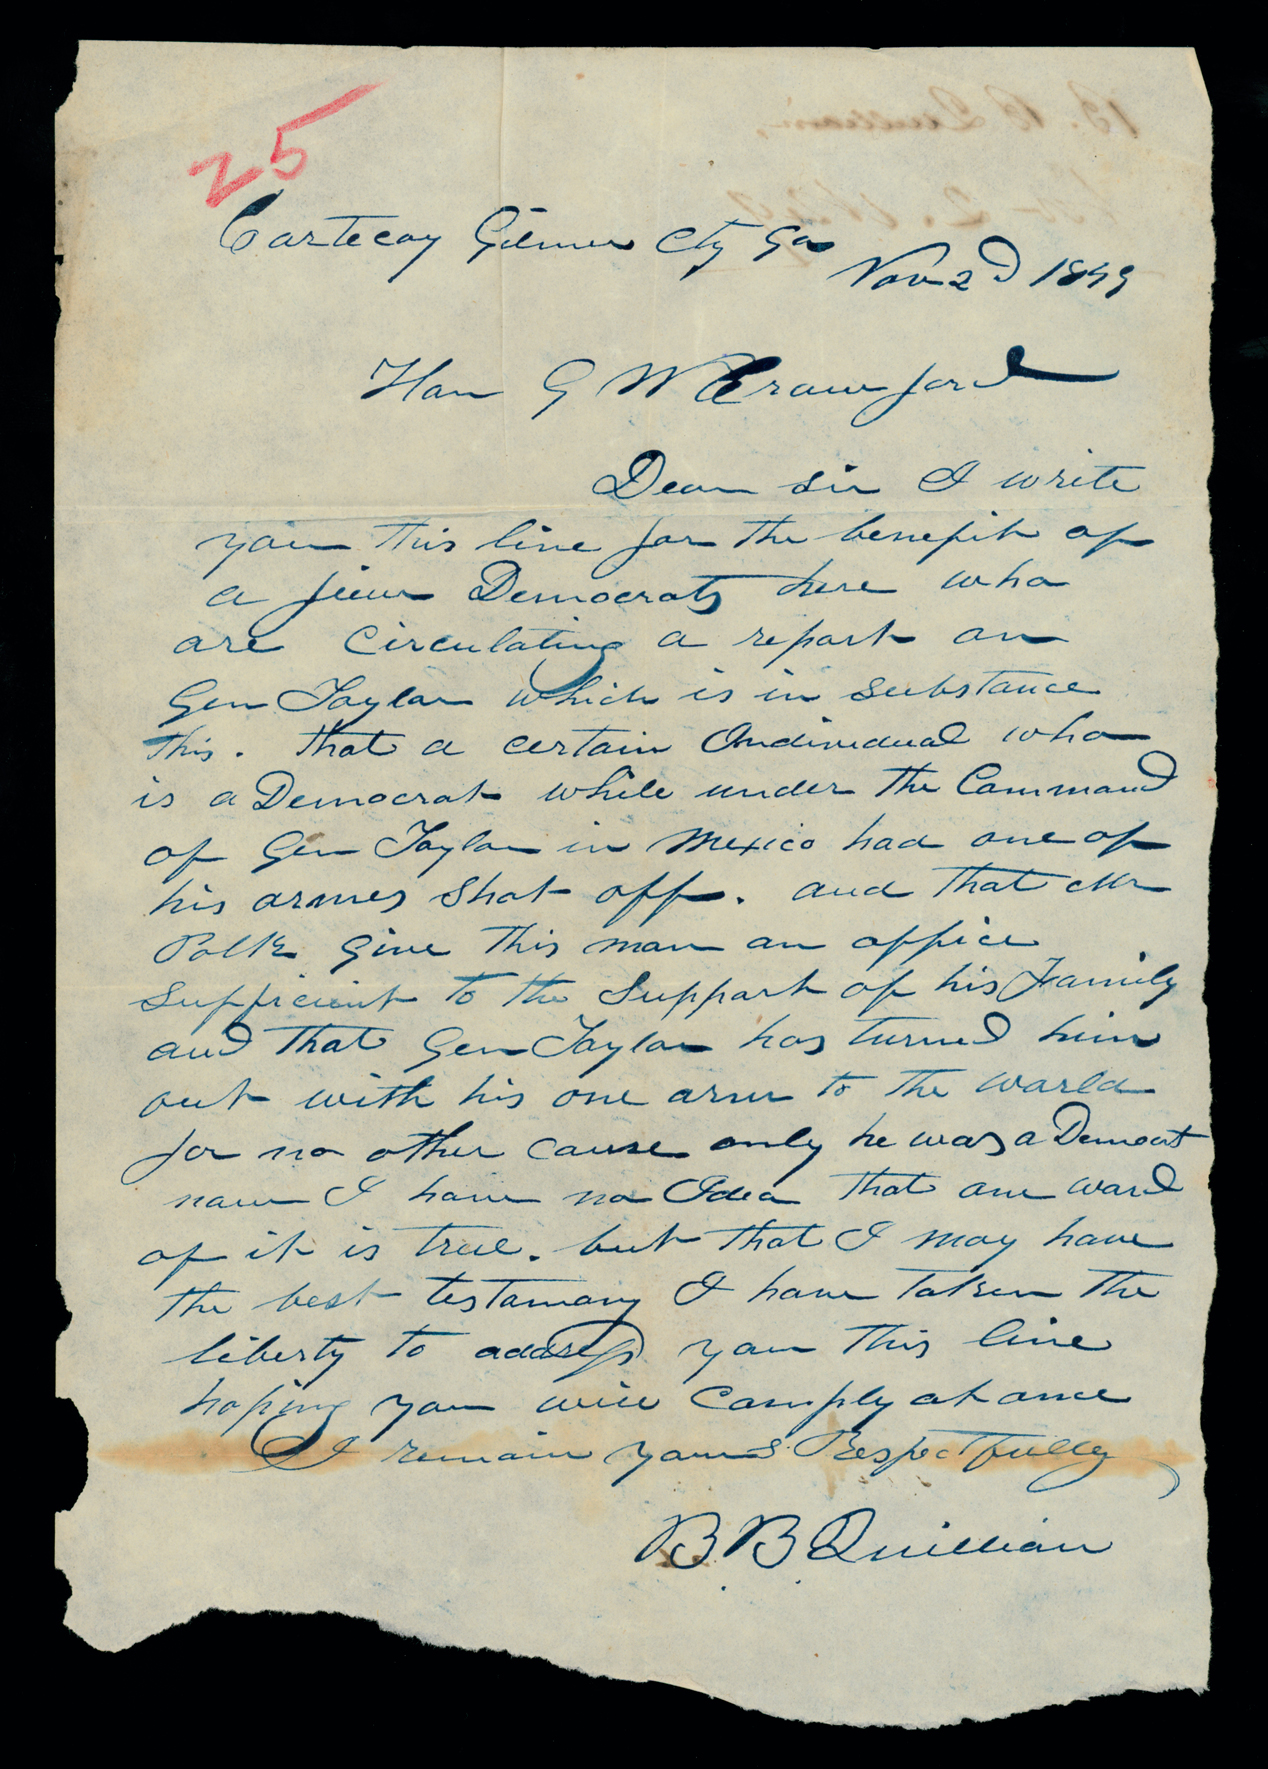 25
Cartecay Gilmer Cty Ga
Nov 2d 1849
Hon G W Crawford
Dear sir I write
you this line for the benefit of
a few Democrats here who
are Circulating a report on
Gen Taylor which is in substance
this. that a certain Individual who
is a Democrat while under the Command
of Gen Taylor in Mexico had one of
his armes shot off. and that Mr
Polk give this man an office
sufficient to the support of his Family
and that Gen Taylor has turned him
out with his one arm to the world
for no other cause only he was a Democrt
now I have no Idea that one word
of it is true. but that I may have
the best testamony I have taken the
liberty to address you this line
hoping you will comply at once
I remain yours Respectfully
B. B. Quillian